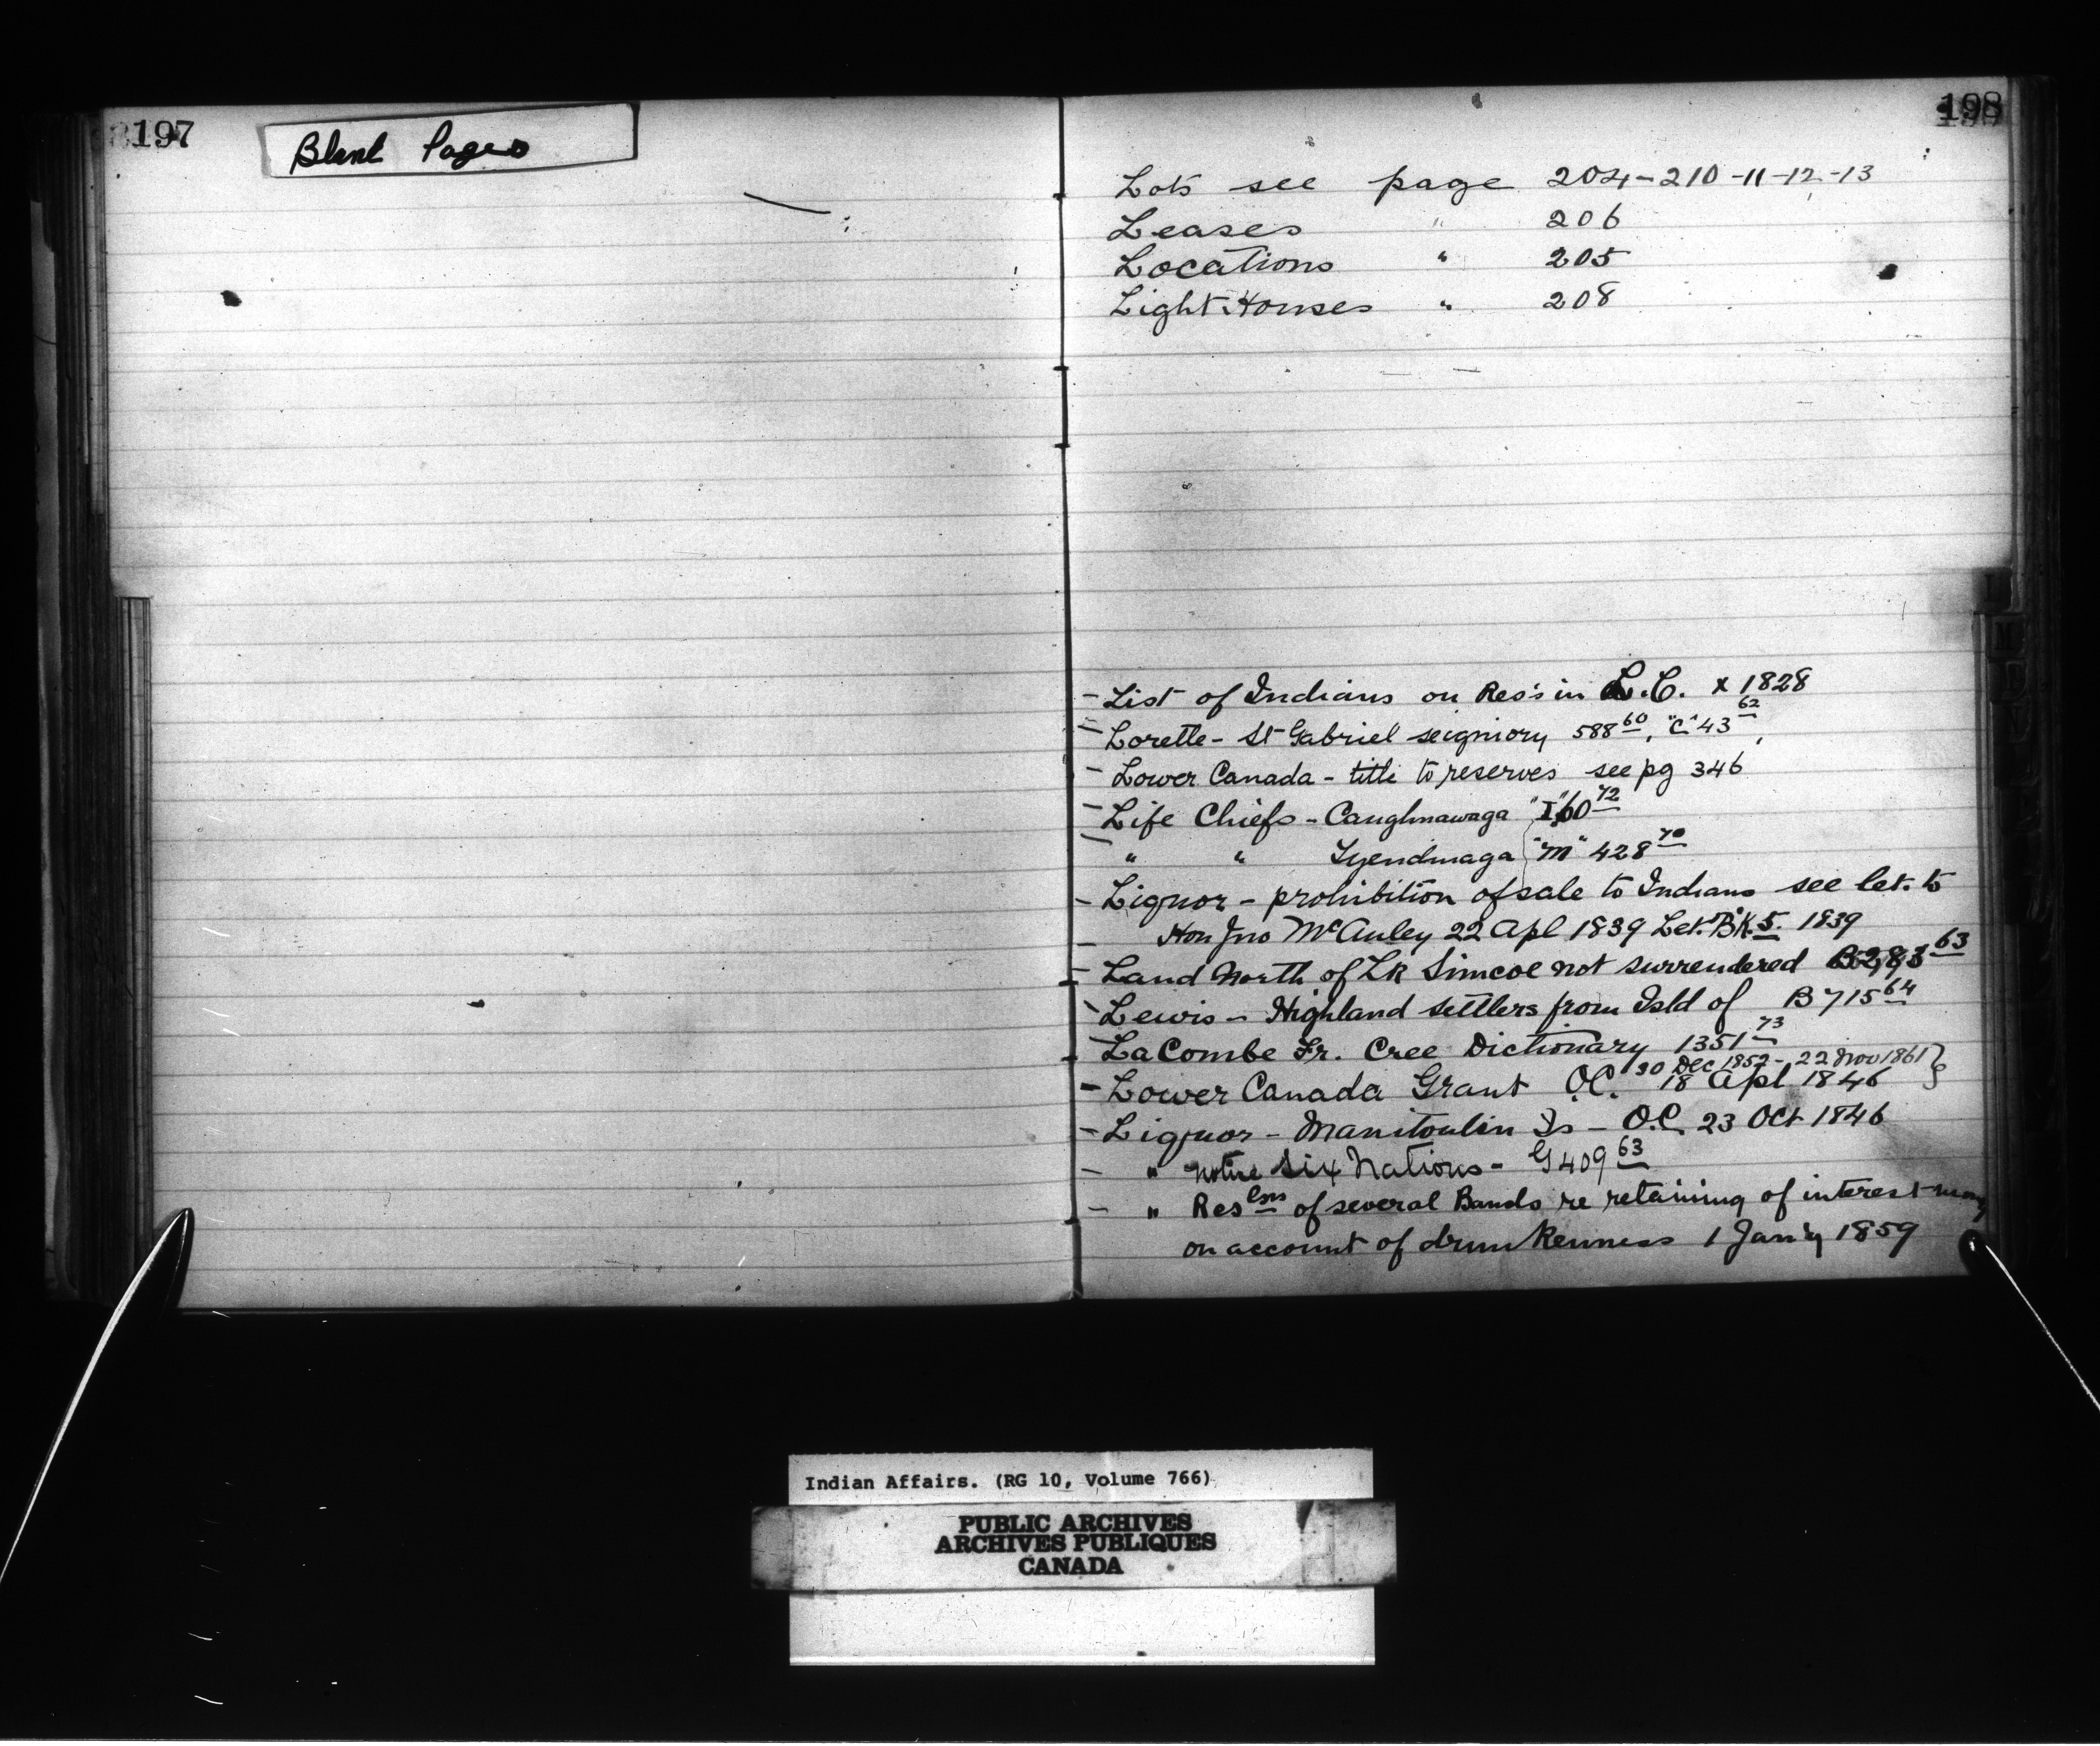 197
Blank Pages
198
Lots see page 204-210-11-12-13
Leases " 206
Locations " 205
Light Houses " 208
- List of Indians on Res's in L.C. x 1828
- Lorette - St Gabriel seigniory 588 60, "C" 43 62,
- Lower Canada - title to reserves see pg 346
- Life Chiefs - Caughnawaga "I" 60 72
- " " Tyendinaga "M" 428 70
- Liquor - prohibition of sale to Indians see let. to
- Hon Jno McAuley 22 Apl 1839 Let. B'k. 5. 1839
- Land North of Lk Simcoe not surrendered 63
- Lewis - Highland settlers from Isld of B 715 64
- LaCombe Fr. Cree Dictionary 1351 73
30 Dec 1852 - 22 Nov 1861 }
- Lower Canada Grant O.C. 18 Apl 1846
- Liquor - Manitoulin Is - O.C. 23 Oct 1846
- " notice Six Nations - G 409 63
- " Reslns of several Bands re retaining of interest money
on account of drunkenness 1 Jan'y 1859
Indian Affairs. (RG 10, Volume 766)
PUBLIC ARCHIVES
ARCHIVES PUBLIQUES
CANADA